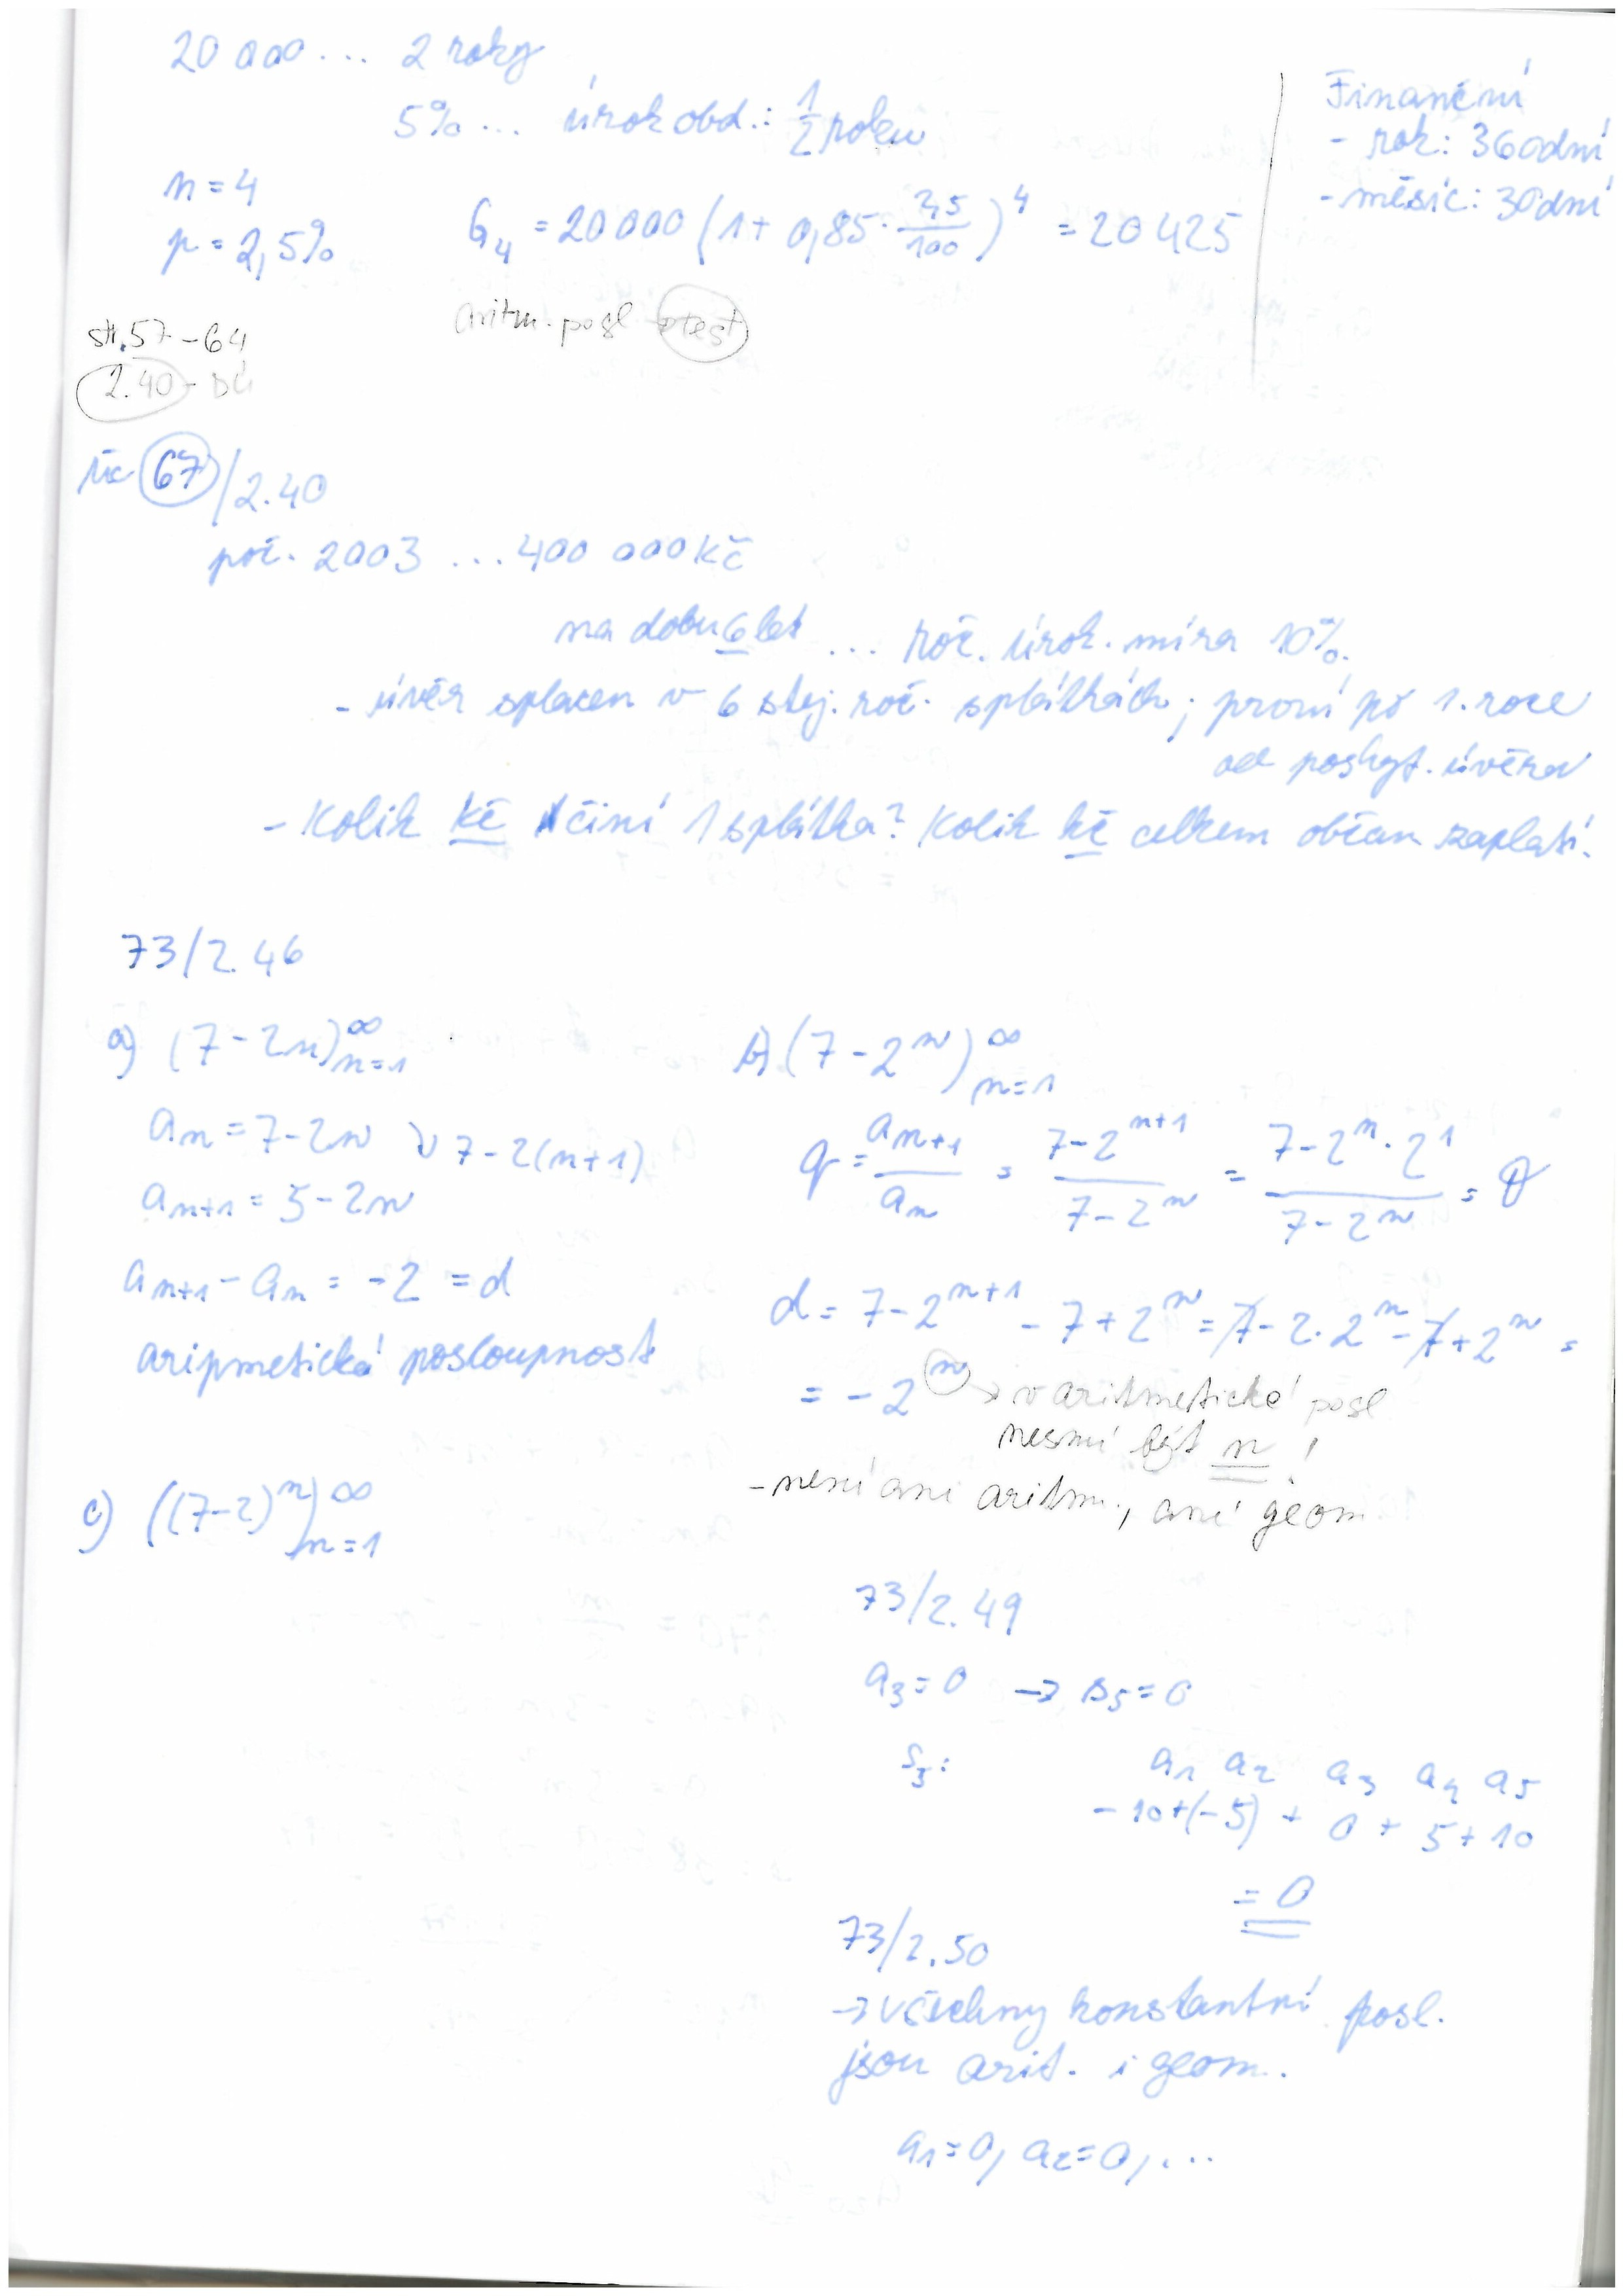 20 000 ... 2 roky
5% ... úrok obd.: 1/2 roku
n = 4
p = 2,5%
G₄ = 20 000 (1 + 0,85 · 2,5/100)⁴ = 20 425
Finanční
- rok: 360dní
- měsíc: 30dní
aritm. posl test
str. 57 - 64
2.40 - DÚ
67/2.40
poč. 2003 ... 400 000 Kč
na dobu 6 let ... roč. úrok. míra 10%.
- úvěr splacen v 6 stej. roč. splátkách; první po 1. roce
od poskyt. úvěru
- Kolik kč činí 1 splátka? Kolik kč celkem občan zaplatí.
73/2.46
a) (7 - 2n)∞n=1
aₙ = 7 - 2n 7 - 2(n+1)
aₙ₊₁ = 5 - 2n
aₙ₊₁ - aₙ = -2 = d
aripmetická posloupnost
b) (7 - 2ⁿ)∞n=1
q = aₙ₊₁/aₙ = 7 - 2ⁿ⁺¹/7 - 2ⁿ = 7 - 2ⁿ · 2¹/7 - 2ⁿ =
d = 7 - 2ⁿ⁺¹ - 7 + 2ⁿ = 7 - 2 · 2ⁿ - 7 + 2ⁿ =
= - 2ⁿ → v aritmetické posl
nesmí být n !
- není ani aritm., ani geom
c) ((7-2)ⁿ)∞n=1
73/2.49
a₃ = 0 → s₅ = 0
a₁ a₂ a₃ a₄ a₅
- 10 + (-5) + 0 + 5 + 10
= 0
73/2.50
→ všechny konstantní posl.
jsou arit. i geom.
a₁ = 0, a₂ = 0, ...